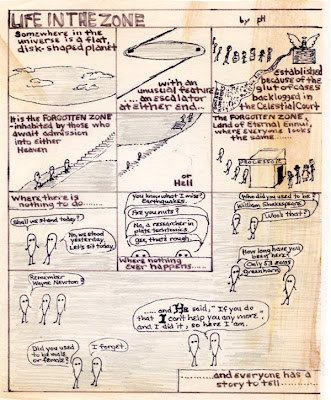 LIFE IN THE ZONE
by pH
Somewhere in the
universe is a flat,
disk-shaped planet
with an
unusual feature
....an escalator
at either end...
established
because of the
glut of cases
backlogged in
the Celestial Court
It is the FORGOTTEN ZONE
inhabited by those who
await admission
into either
Heaven
or
Hell
The FORGOTTEN ZONE,
Land of Eternal Ennui,
where everyone looks
the same.....
Where there is
nothing to do....
Shall we stand today?
No, we stood
yesterday.
Let's sit today.
You know what I miss?
Earthquakes.
Are you nuts?
No, a researcher in
plate tectonics
Gee, that's rough
Where nothing
ever happens.......
Who did you used to be?
William Shakespeare
Who's that?
How long have you
been here?
Only 53 eons
Greenhorn
Remember
Wayne Newton?
.....and He said, "If you do
that I can't help you any more",
and I did it, so here I am.
Did you used
to be male
or female?
I forget.
...and everyone has a
story to tell.....